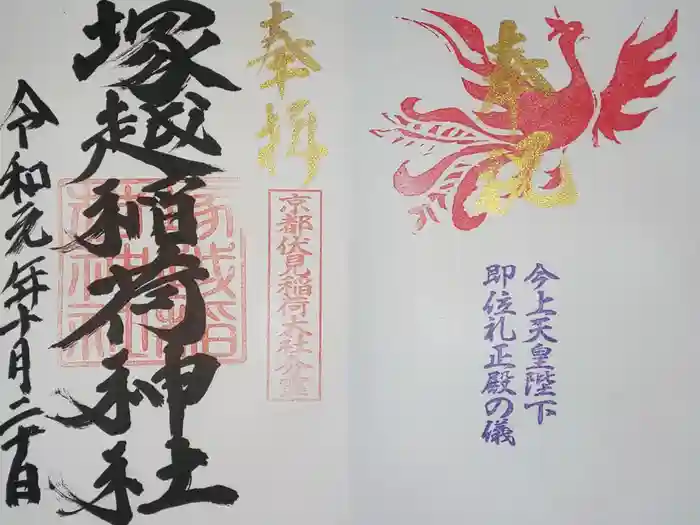 今上天皇陛下
即位礼正殿の儀
奉祝
奉拝
京都伏見稲荷大社分霊
塚越稲荷神社
令和元年十月二十日